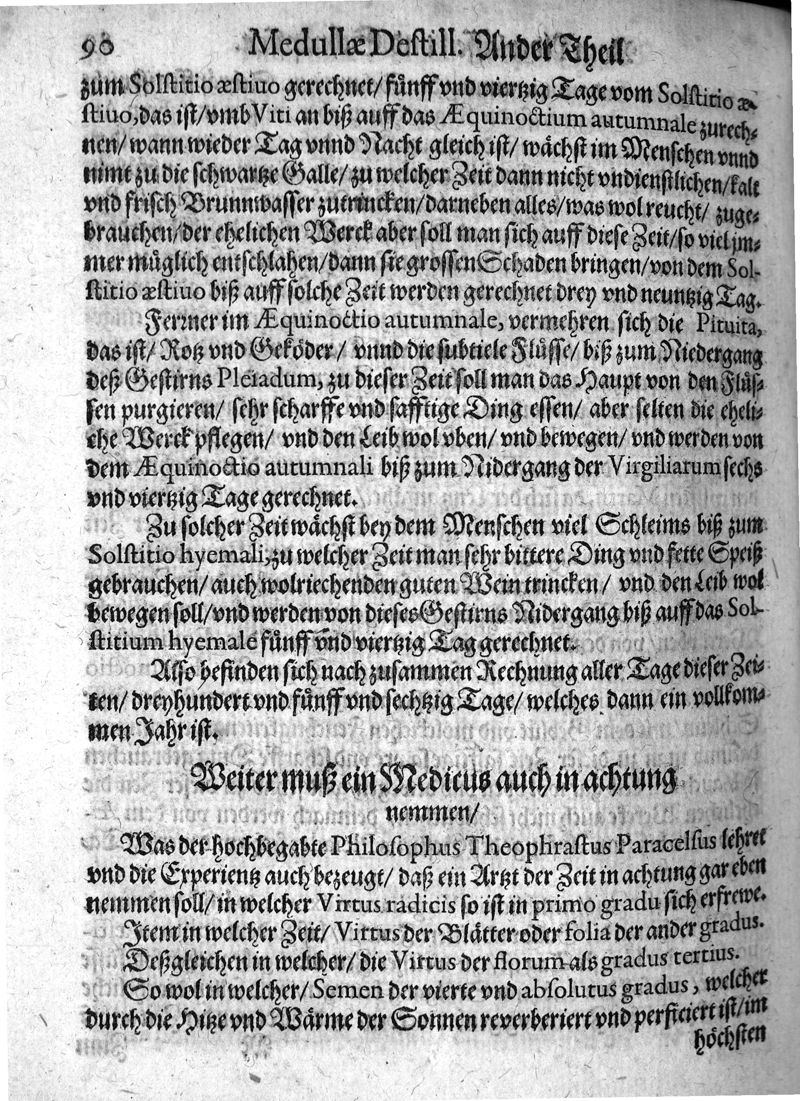 90 Medullæ Destill. Ander Theil
zum Solstitio æstiuo gerechnet/ fünff vnd viertzig Tage vom Solstitio æ-
stiuo, das ist/ vmb Viti an biß auff das Æquinoctium autumnale zurech-
nen/ wann wieder Tag vnnd Nacht gleich ist/ wächst im Menschen vnnd
nimt zu die schwartze Galle/ zu welcher Zeit dann nicht vndienstlichen/ kalt
vnd frisch Brunnwasser zutrincken/ darneben alles/ was wol reucht/ zuge-
brauchen/ der ehelichen Werck aber soll man sich auff diese Zeit/ so viel jm-
mer müglich entschlahen/ dann sie grossen Schaden bringen/ von dem Sol-
stitio æstiuo biß auff solche Zeit werden gerechnet drey vnd neuntzig Tag.
Ferrner im Æquinoctio autumnale, vermehren sich die Pituita,
das ist/ Rotz vnd Geköder/ vnnd die subtiele Flüsse/ biß zum Niedergang
deß Gestirns Pleiadum, zu dieser Zeit soll man das Haupt von den Flüs-
sen purgieren/ sehr scharffe vnd safftige Ding essen/ aber selten die eheli-
che Werck pflegen/ vnd den Leib wol vben/ vnd bewegen/ vnd werden von
dem Æquinoctio autumnali biß zum Nidergang der Virgiliarum sechs
vnd viertzig Tage gerechnet.
Zu solcher Zeit wächst bey dem Menschen viel Schleims biß zum
Solstitio hyemali, zu welcher Zeit man sehr bittere Ding vnd fette Speiß
gebrauchen/ auch wolriechenden guten Wein trincken/ vnd den Leib wol
bewegen soll/ vnd werden von dieses Gestirns Nidergang biß auff das Sol-
stitium hyemale fünff vnd viertzig Tag gerechnet.
Also befinden sich nach zusammen Rechnung aller Tage dieser Zei-
ten/ dreyhundert vnd fünff vnd sechtzig Tage/ welches dann ein vollkom-
men Jahr ist.
Weiter muß ein Medicus auch in achtung
nemmen/
Was der hochbegabte Philosophus Theophrastus Paracelsus lehret
vnd die Experientz auch bezeugt/ daß ein Artzt der Zeit in achtung gar eben
nemmen soll/ in welcher Virtus radicis so ist in primo gradu sich erfrewe.
Item in welcher Zeit/ Virtus der Blätter oder folia der ander gradus.
Deßgleichen in welcher/ die Virtus der florum als gradus tertius.
So wol in welcher/ Semen der vierte vnd absolutus gradus, welcher
durch die Hitze vnd Wärme der Sonnen reverberiert vnd perficiert ist/ im
höchsten